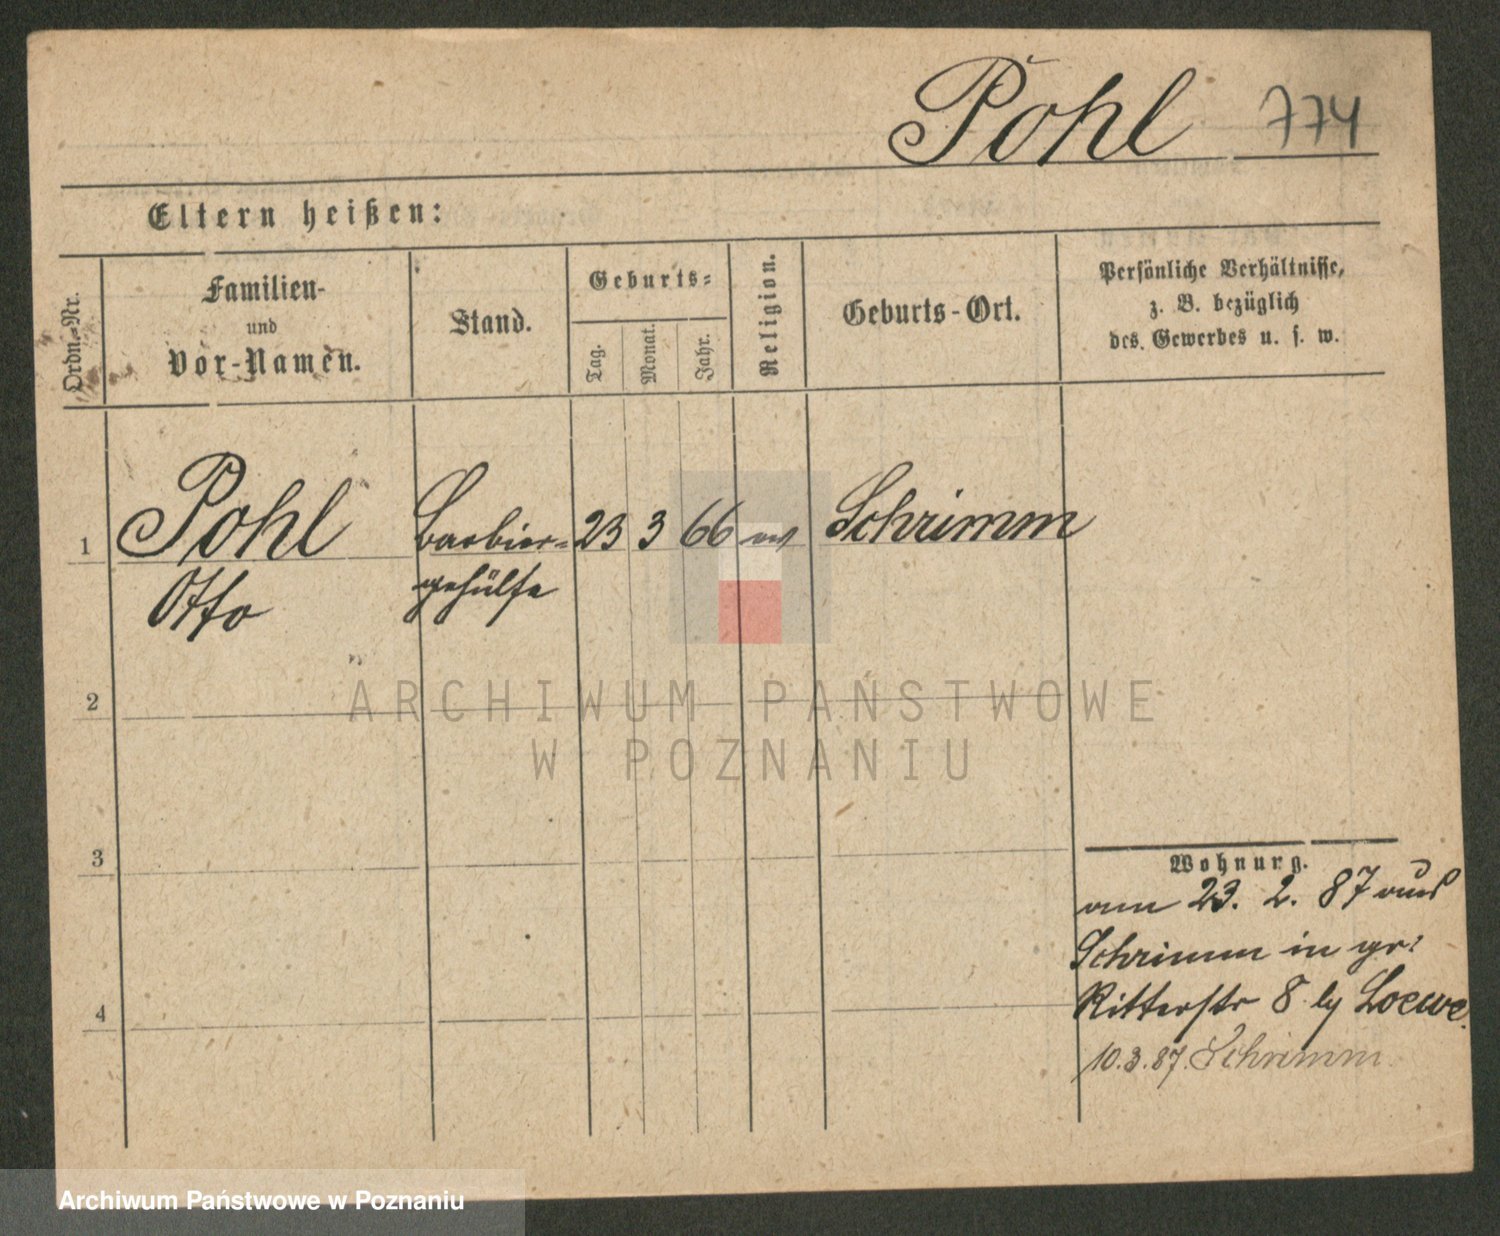 Pohl 774
Eltern heißen:
Ordn.-Nr.
Familien-
und
Vor-Namen.
Stand.
Geburts-
Tag.
Monat.
Jahr.
Religion.
Geburts-Ort.
Persönliche Verhältnisse,
z. B. bezüglich
des Gewerbes u. s. w.
1 Pohl Barbier- 23 3 66 Schrimm
Otto gehülfe
2
3
4
Wohnung.
am 23. 2. 87 aus
Schrimm in gr:
Ritterstr 8 Loewe.
10.3.87. Schrimm
ARCHIWUM PAŃSTWOWE
W POZNANIU
Archiwum Państwowe w Poznaniu